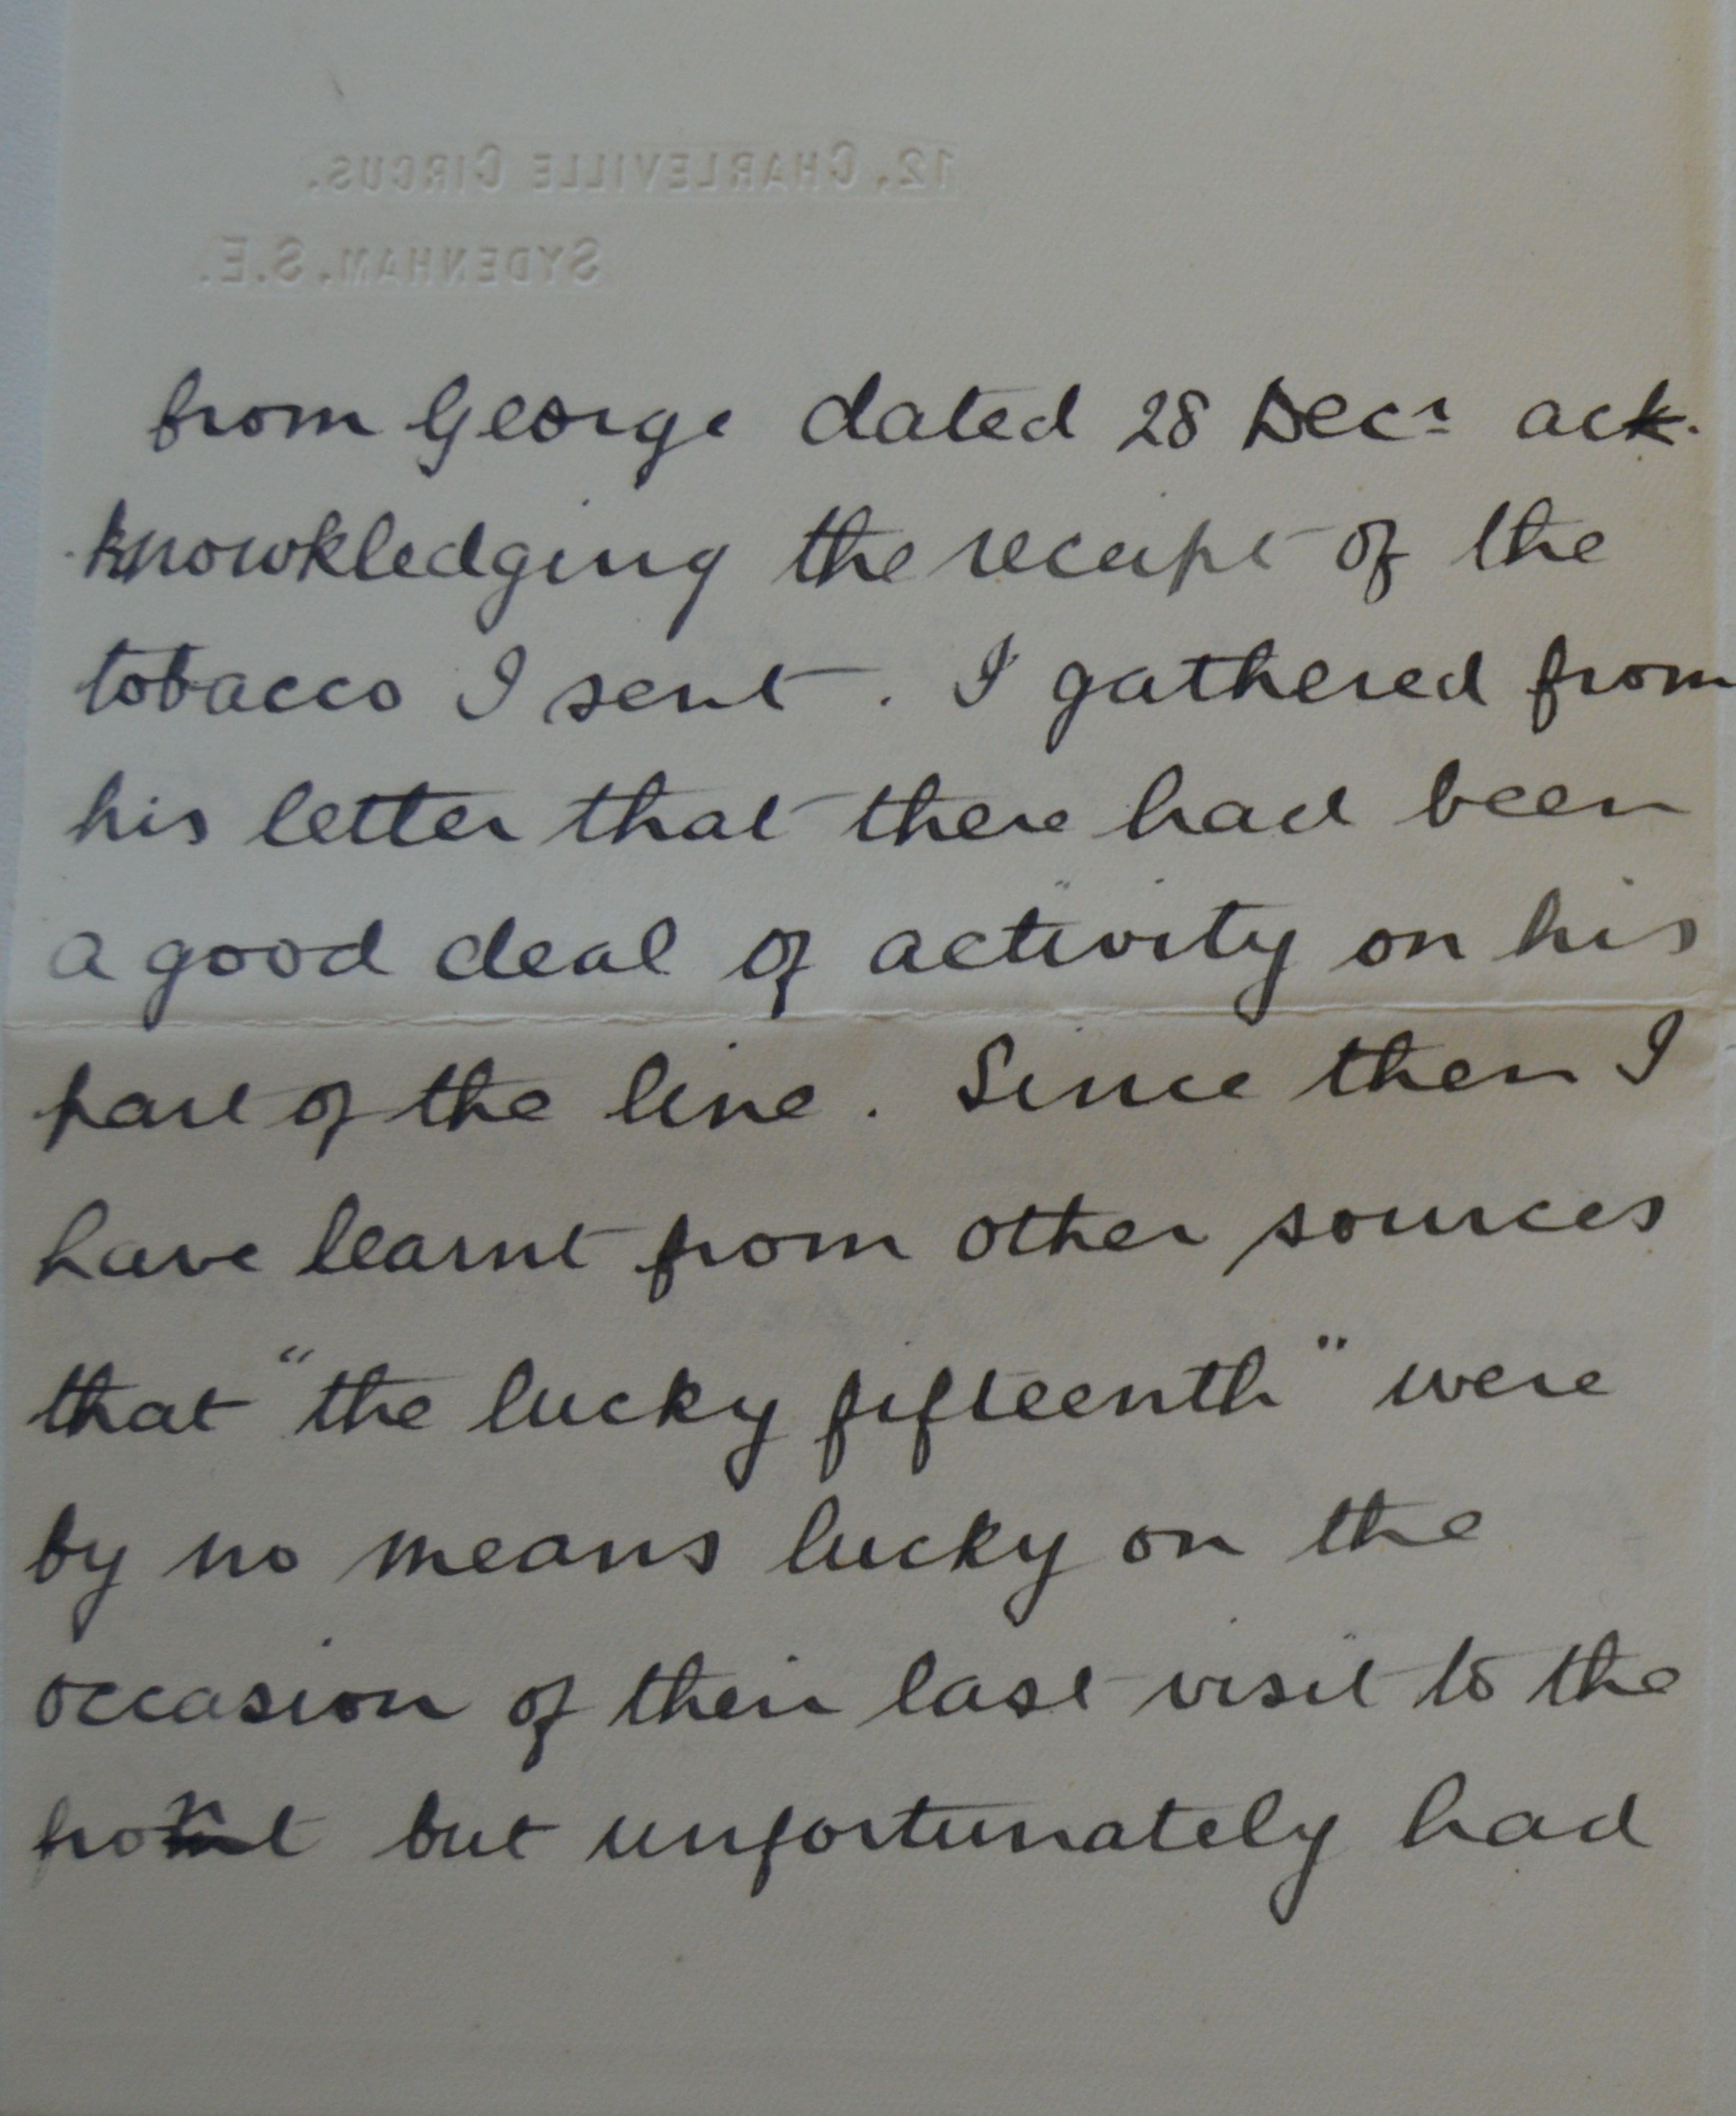 12, CHARLEVILLE CIRCUS.
SYDENHAM, S.E.
from George dated 28 Decr ack-
knowkledging the receipt of the
tobacco I sent. I gathered from
his letter that there had been
a good deal of activity on his
part of the line. Since then I
have learnt from other sources
that "the lucky fifteenth" were
by no means lucky on the
occasion of their last visit to the
front but unfortunately had